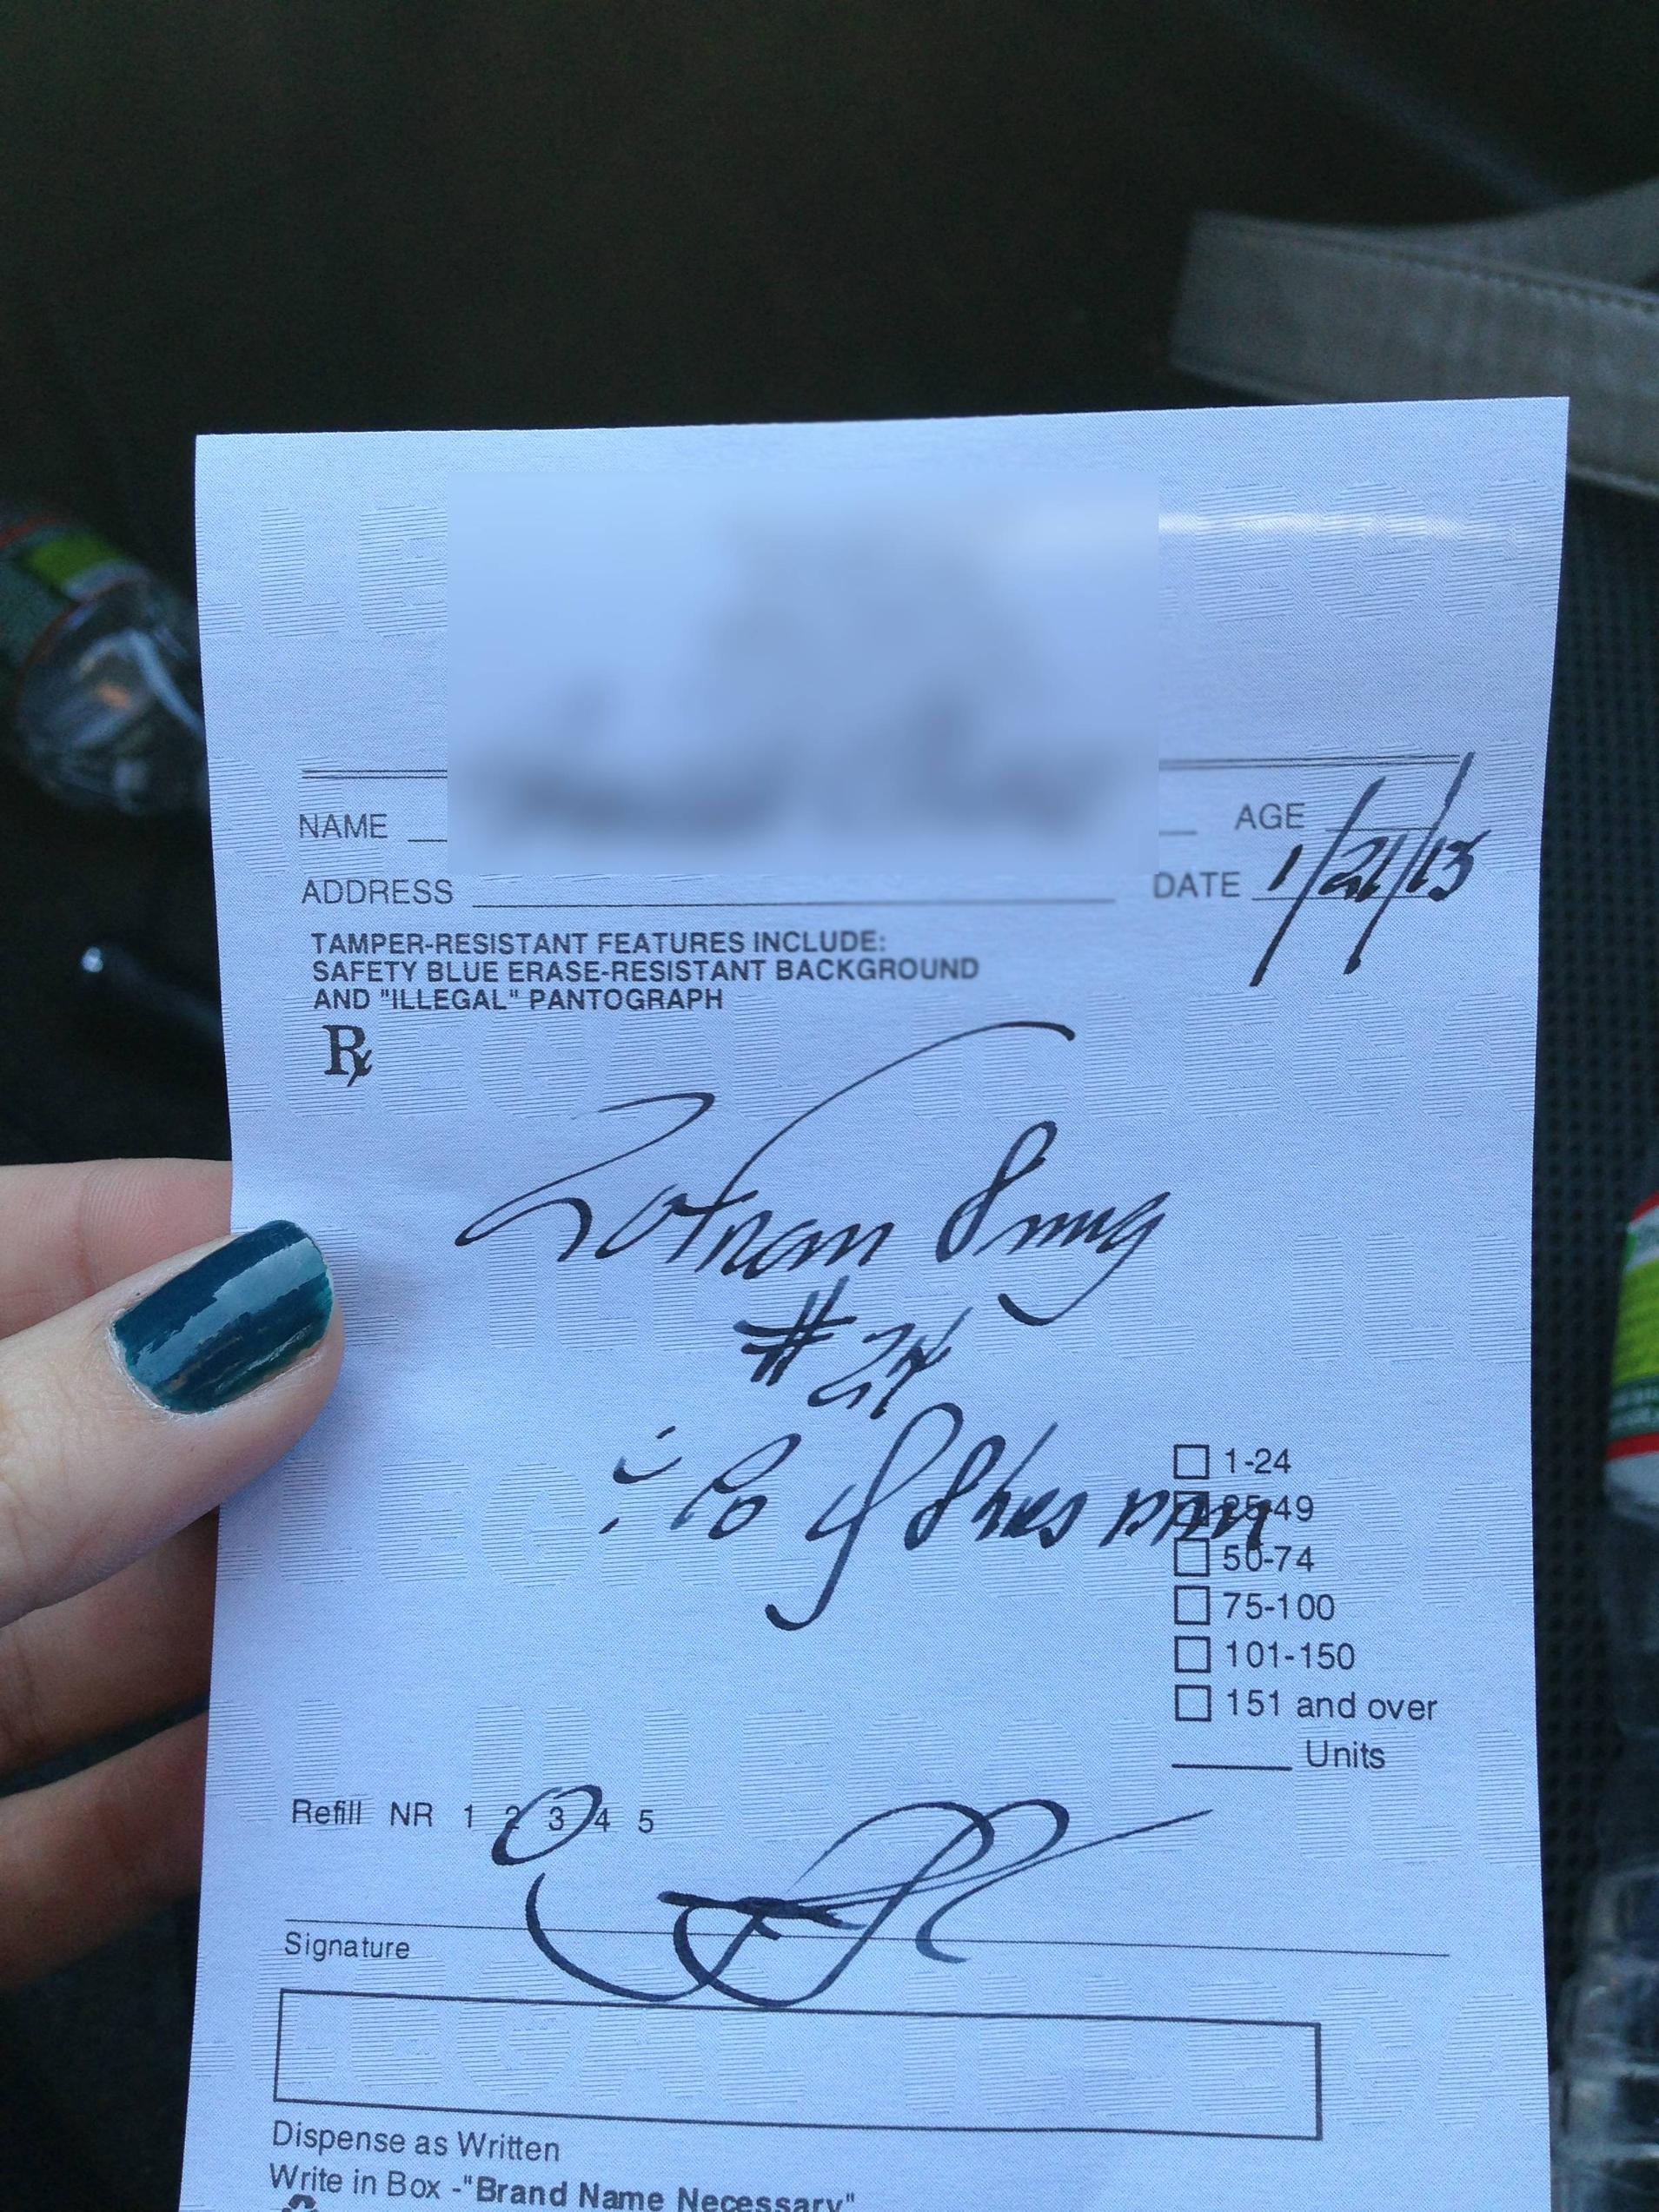 NAME
AGE
ADDRESS DATE 1/21/13
TAMPER-RESISTANT FEATURES INCLUDE:
SAFETY BLUE ERASE-RESISTANT BACKGROUND
AND "ILLEGAL" PANTOGRAPH
Rx
Zofran 8mg
#24
i Po q 8hrs prn
1-24
25-49
50-74
75-100
101-150
151 and over
Units
Refill NR 1 2 3 4 5
Signature
Dispense as Written
Write in Box -"Brand Name Necessary"